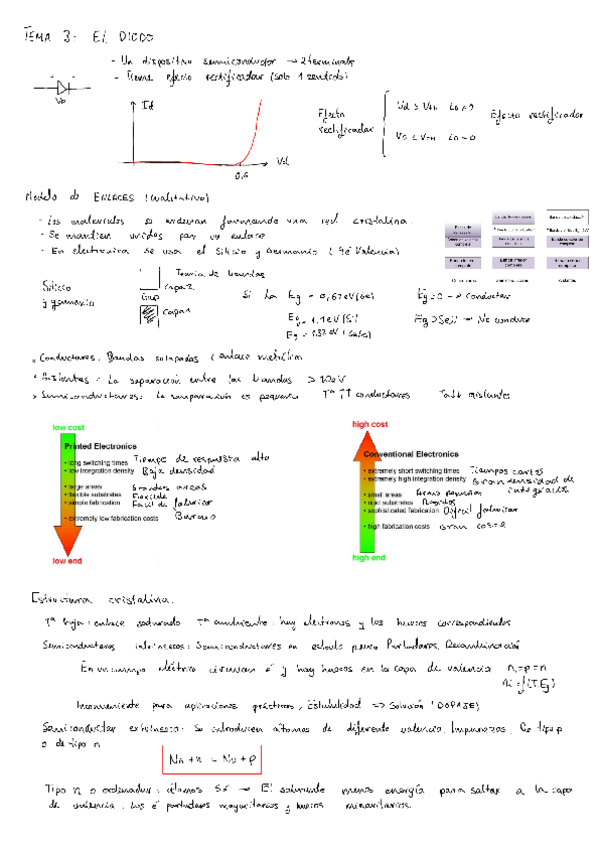 TEMA 3: EL DIODO
- Un dispositivo semiconductor → 2 terminales
- Tiene efecto rectificador (solo 1 sentido)
Id
Vd
0,6
Efecto rectificador
Efecto rectificador
Modelo de ENLACES (cualitativo)
- Los materiales se ordenan formando una red cristalina.
- Se mantien unidos por un enlace
- En electronica se usa el Silicio y Germanio (4é Valencia)
Silicio y germanio
Teoria de bandas
Gap
Si la Eg = 0,67eV (Ge)
Eg = 1.1eV (Si)
Eg=0 → Conductor
No conduce
* Conductores: Bandas solapadas (enlace metálico
* Aislantes: La separación entre las bandas > 10eV
* Semiconductores: La separación es pequeña Tª↑↑ conductores Ta↓↓ aislantes
low cost
Printed Electronics
• long switching times Tiempo de respuesta alto
• low integration density Baja densidad
• large areas Grandes areas
• flexible substrates Flexible
• simple fabrication Facil de fabricar
• extremely low fabrication costs Barato
low end
high cost
Conventional Electronics
• extremely short switching times Tiempos cortos
• extremely high integration density Gran densidad de integración
• small areas Areas pequeñas
• rigid substrates Rigidos
• sophisticated fabrication Dificil fabricar
• high fabrication costs Gran coste
high end
Estructura cristalina.
Tª baja: enlace saturado Tª ambiente: hay electrones y los huecos correspondientes
Semiconductores intrinsecos: Semiconductores en estado puro Portadores, Recombinación
En un campo eléctrico circulan é y hay huecos en la capa de valencia n=p=n
Ni = f(T,Eg)
Inconveniente para aplicaciones prácticas, Estabilidad => Solución (DOPAJE)
Semiconductor extrinseco: Se introducen átomos de diferente valencia. Impurezas. De tipo p
o de tipo n
Na + n = Nd + p
Tipo n o donador: átomos 5é → El sobrante menos energía para saltar a la capa
de valencia. Los é portadores mayoritarios y huecos minoritarios.